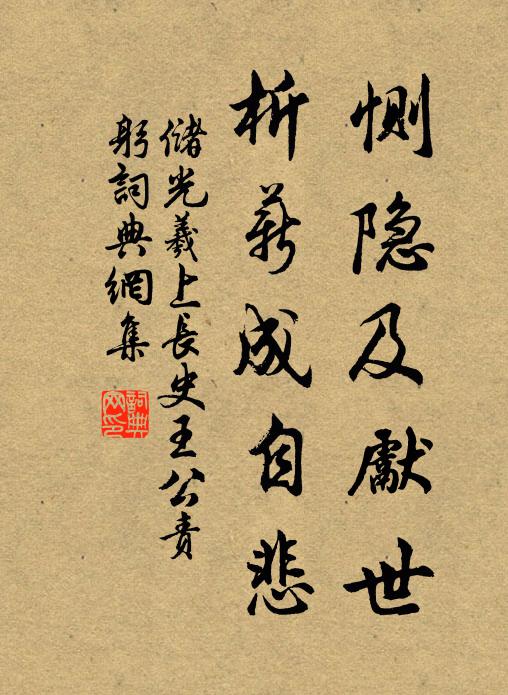 惻隐及獻世
析薪成自悲
儲光羲上長史王公責
躬詞典網集
詞典
网印